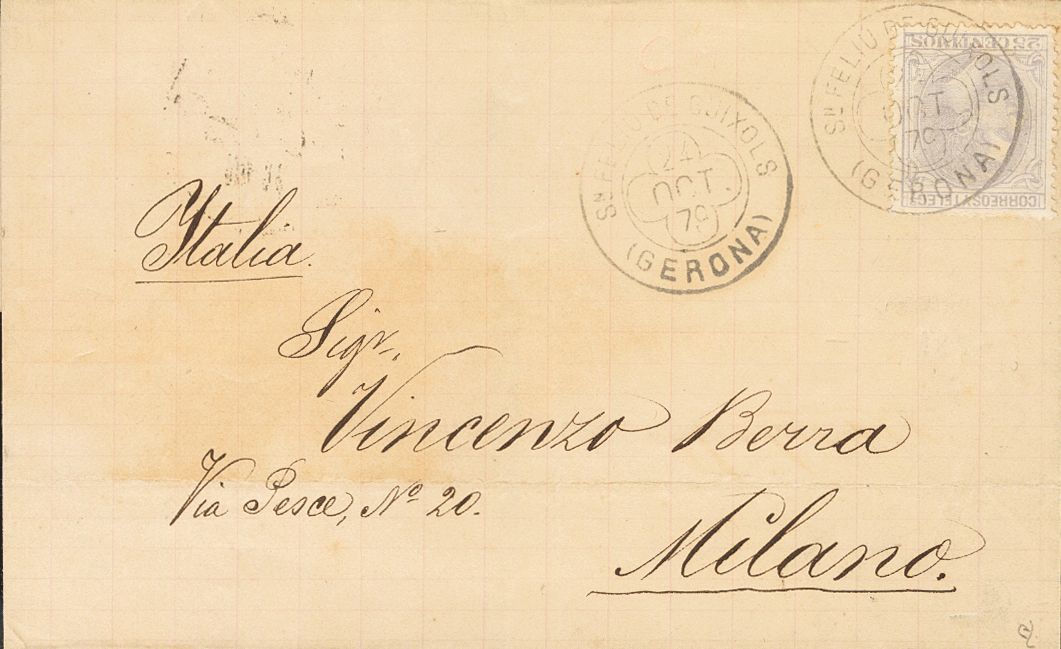 Sn FELIÚ DE GUIXOLS
24
OCT
79
(GERONA)
25 CENTIMOS
CORREOS Y TELEGS
Sn FELIÚ DE GUIXOLS
24
OCT.
79
(GERONA)
Italia.
Sigr.
Vincenzo Berra
Via Pesce, No 20.
Milano.